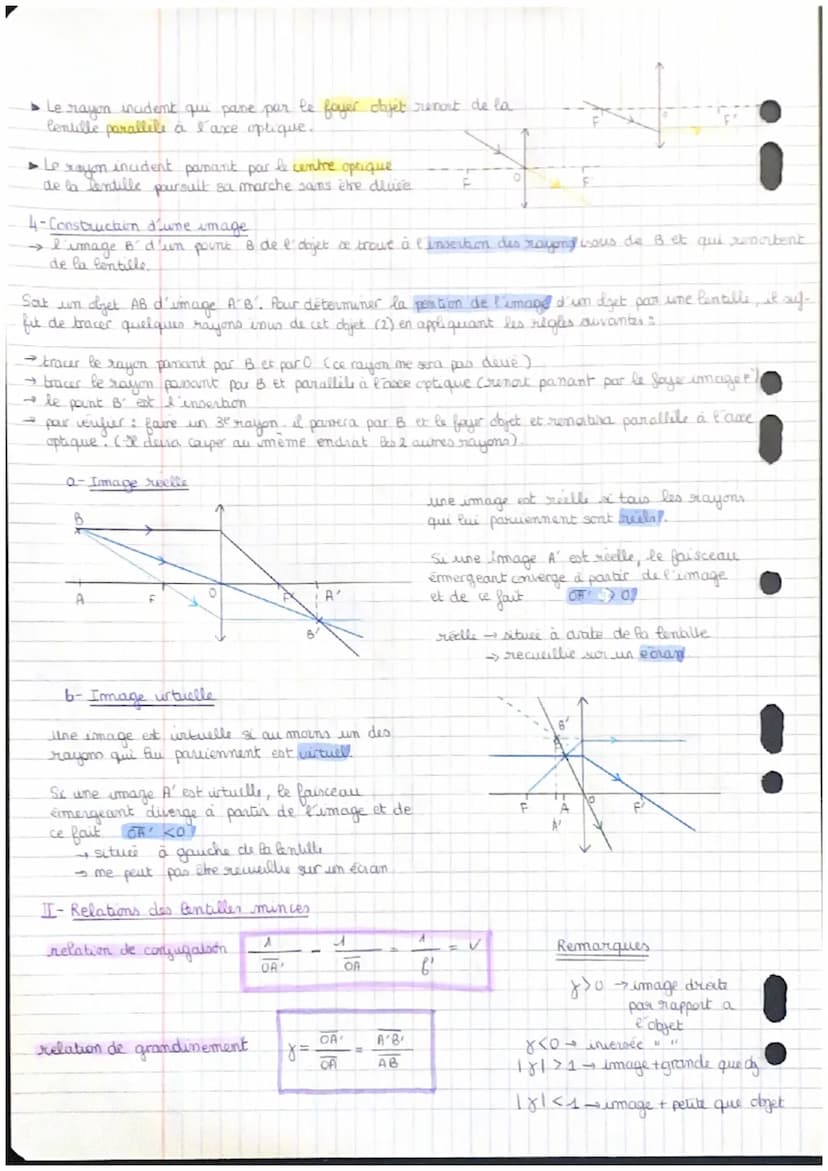 ▸ Le rayon incident qui passe par le foyer objet ressort de la
lentille parallèle à l'axe optique.
F O F'
▸ Le rayon incident passant par le centre optique
de la lentille poursuit sa marche sans être dévié
F O F'
4-Construction d'une image
→ l'image B' d'un point B de l'objet se trouve à l'insertion des rayons issus de B et qui ressortent
de la lentille.
Soit un objet AB d'image A'B'. Pour déterminer la position de l'image d'un objet par une lentille, il suf-
fit de tracer quelques rayons issus de cet objet (2) en appliquant les règles suivantes :
→ tracer le rayon passant par B et par O (ce rayon ne sera pas dévié)
→ tracer le rayon passant par B et parallèle à l'axe optique (ressort passant par le foyer image F')
→ le point B' est l'insertion
→ par vérifier : faire un 3e rayon. il passera par B et le foyer objet et ressortira parallèle à l'axe
optique. (Il devra couper au même endroit les 2 autres rayons)
a- Image réelle
B
A F O F' A'
B'
une image est réelle si tous les rayons
qui lui parviennent sont réels.
Si une image A' est réelle, le faisceau
émergeant converge à partir de l'image
et de ce fait OA' > 0
réelle → située à droite de la lentille
→ recueillie sur un écran
b- Image virtuelle
Une image est virtuelle si au moins un des
rayons qui lui parviennent est virtuel.
Si une image A' est virtuelle, le faisceau
émergeant diverge à partir de l'image et de
ce fait OA' < 0
→ située à gauche de la lentille
→ ne peut pas être recueillie sur un écran
B'
F A O F'
A'
II- Relations des lentilles minces
relation de conjugaison 1/OA' - 1/OA = 1/f' = V
relation de grandissement γ = OA'/OA = A'B'/AB
Remarques
γ>0 → image droite
par rapport à
l'objet
γ<0 → inversée " "
|γ| > 1 → image + grande que obj
|γ| < 1 → image + petite que objet